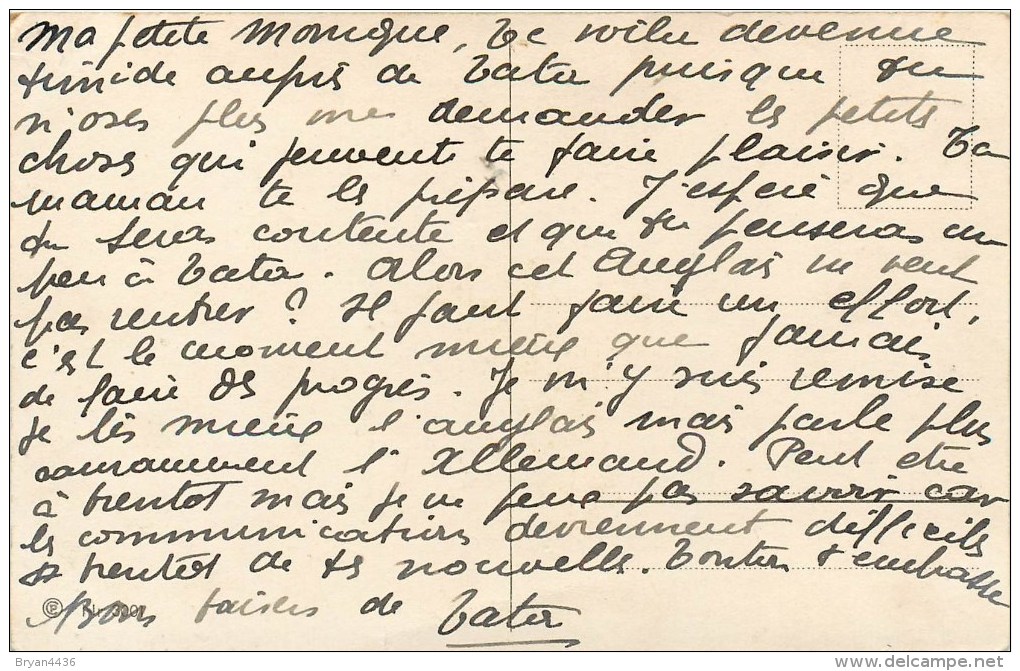 Ma petite Monique, Te voilà devenue
timide auprès de Tata puisque tu
n'oses plus me demander les petits
choses qui peuvent te faire plaisir. Ta
maman te les prépare. J'espère que
tu seras contente et que tu penseras un
peu à Tata. Alors cet Anglais ne veut
pas rentrer ? Il faut faire un effort,
c'est le moment mieux que jamais
de faire des progrès. Je m'y suis remise
je lis mieux l'anglais mais parle plus
couramment l'Allemand. Peut être
à bientôt mais je ne peux pas savoir car
les communications deviennent difficiles
à bientôt de tes nouvelles. Tonton t'embrasse
Bons baisers de Tata
Nr. 3201
Bryan4436
delcampe.net